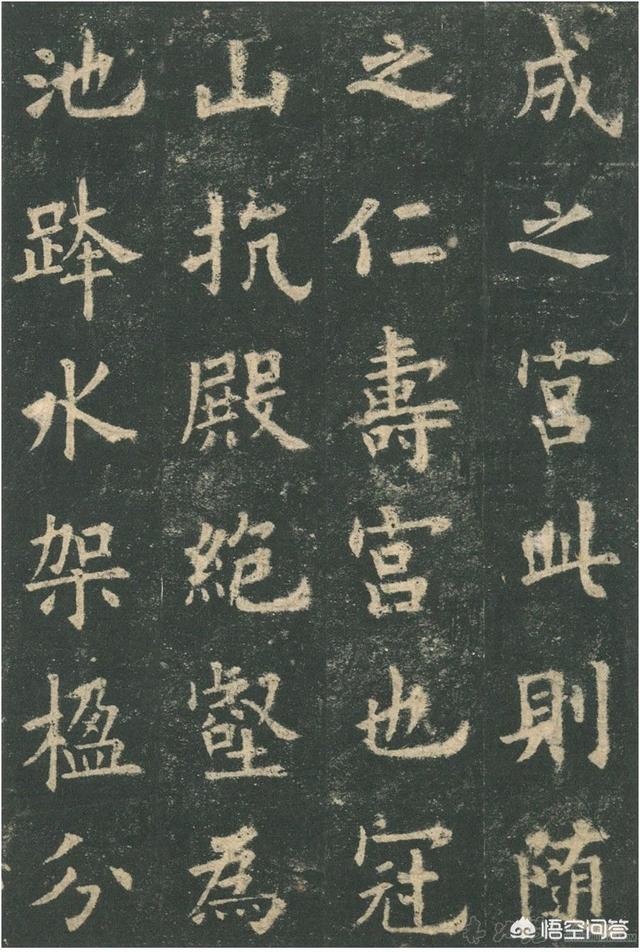 成之宮此則随
之仁壽宮也冠
山抗殿絶壑為
池跨水架楹分
悟空问答